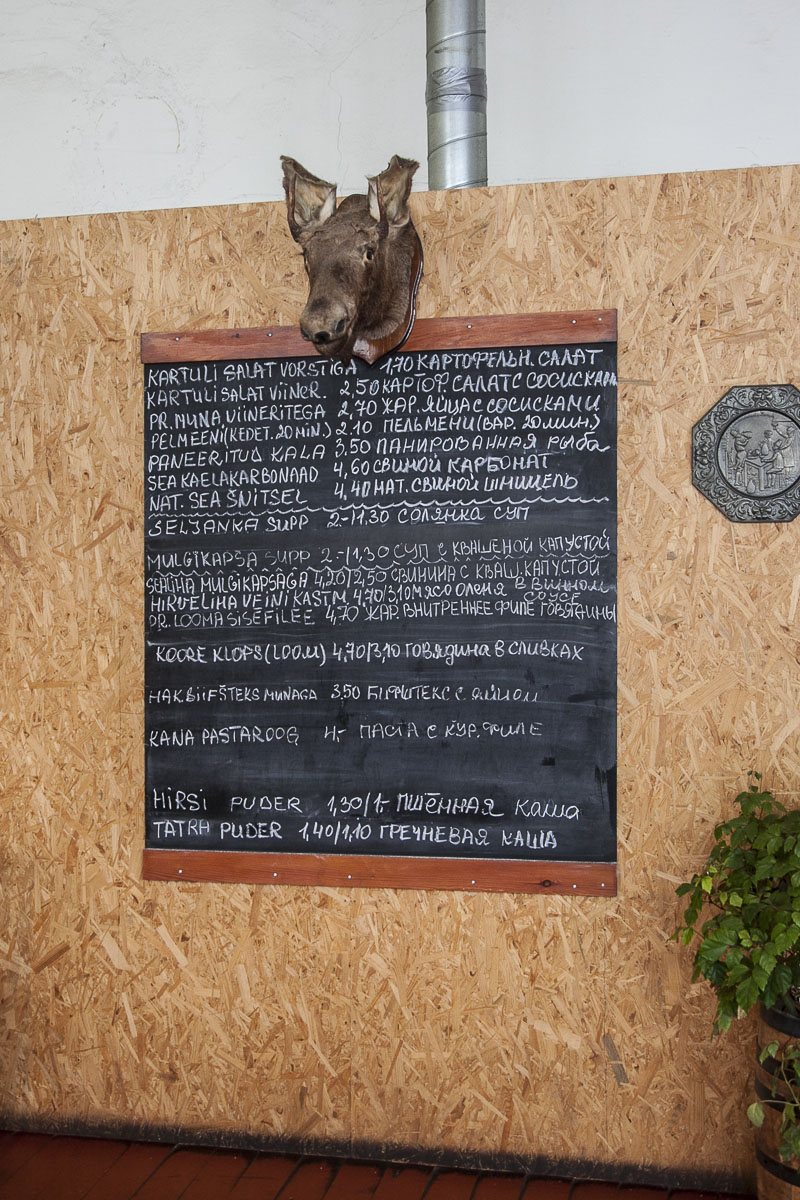 KARTULI SALAT VORSTIGA 1,70 КАРТОФЕЛЬН. САЛАТ
KARTULI SALAT VIINER. 2,50 КАРТОФ. САЛАТ С СОСИСКАМИ
PR. MUNA, VIINERITEGA 2,70 ЖАР. ЯЙЦА С СОСИСКАМИ
PELMEENI (KEDET. 20 MIN.) 2.10 ПЕЛЬМЕНИ (ВАР. 20 МИН.)
PANEERITUD KALA 3.50 ПАНИРОВАННАЯ РЫБА
SEA KAELAKARBONAAD 4,60 СВИНОЙ КАРБОНАТ
NAT. SEA ŠNITSEL 4,40 НАТ. СВИНОЙ ШНИЦЕЛЬ
SELJANKA SUPP 2.-/1.30 СОЛЯНКА СУП
MULGIKAPSA SUPP 2.-/1,30 СУП С КВАШЕНОЙ КАПУСТОЙ
SEALIHA MULGIKAPSAGA 4,20/2,50 СВИНИНА С КВАШ. КАПУСТОЙ
HIRVELIHA VEINI KASTM. 4,70/3,10 МЯСО ОЛЕНЯ В ВИННОМ СОУСЕ
PR. LOOMA SISEFILEE 4,70 ЖАР. ВНУТРЕННЕЕ ФИЛЕ ГОВЯДИНЫ
KOORE KLOPS (LOOM) 4,70/3,10 ГОВЯДИНА В СЛИВКАХ
HAKBIIFŠTEKS MUNAGA 3,50 БІФШТЕКС С ЯЙЦОМ
KANA PASTAROOG 4,- ПАСТА С КУР. ФИЛЕ
HIRSI PUDER 1,30/1,- ПШЁННАЯ КАША
TATRA PUDER 1,40/1,10 ГРЕЧНЕВАЯ КАША